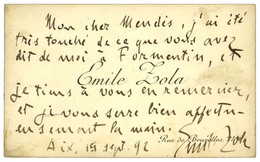 Mon cher Mendès, j'ai été
très touché de ce que vous avez
dit de moi à Formentin, et
Emile Zola
je tiens à vous en remercier,
et je vous serre bien affectu-
eusement la main.
Rue de Bruxelles
Aix, 15 sept. 92 Emile Zola